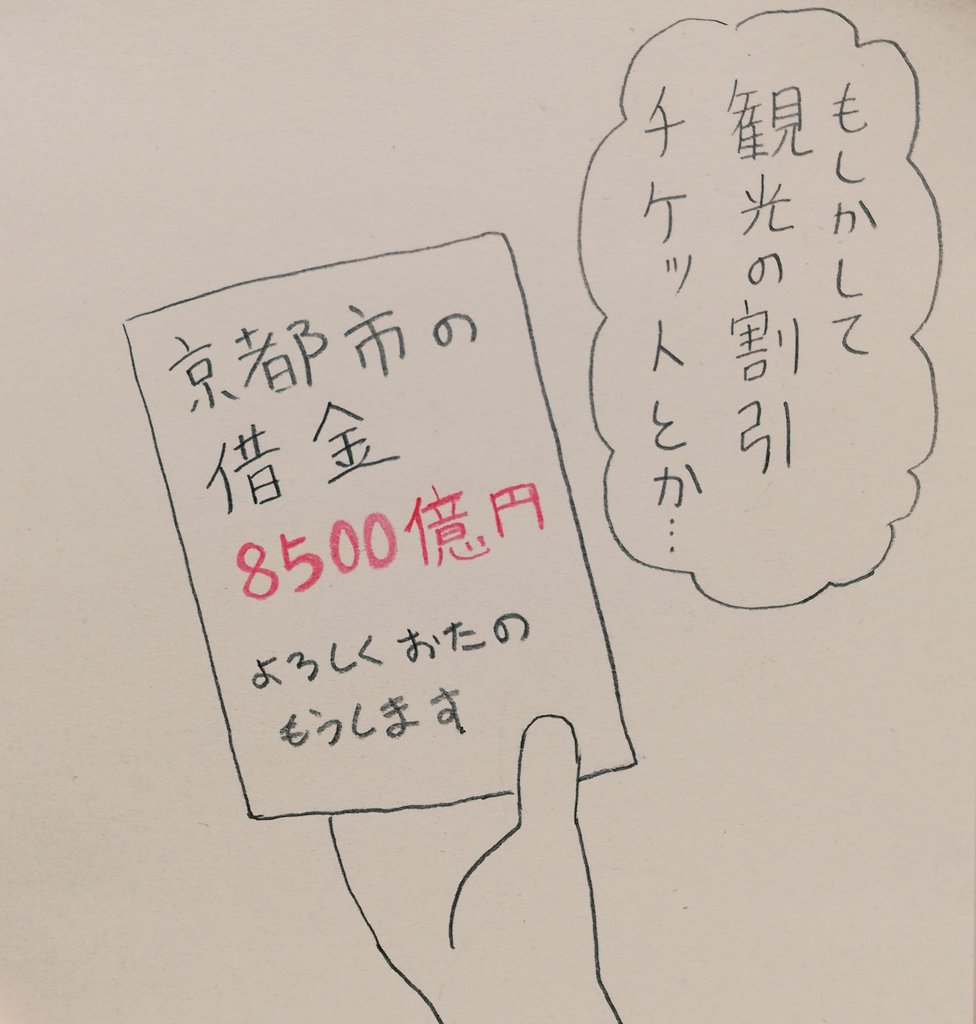 もしかして
観光の割引
チケットとか…
京都市の
借金
8500億円
よろしくおたの
もうします